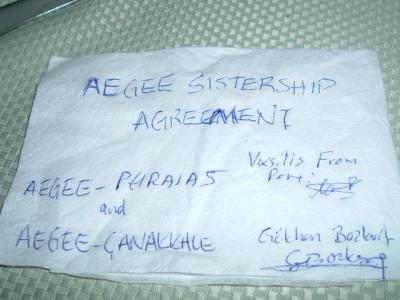 AEGEE SISTERSHIP
AGREEMENT
AEGEE-PEIRAIAS
and
AEGEE-ÇANAKKALE
Vasilis From
Gökhan Bozkurt